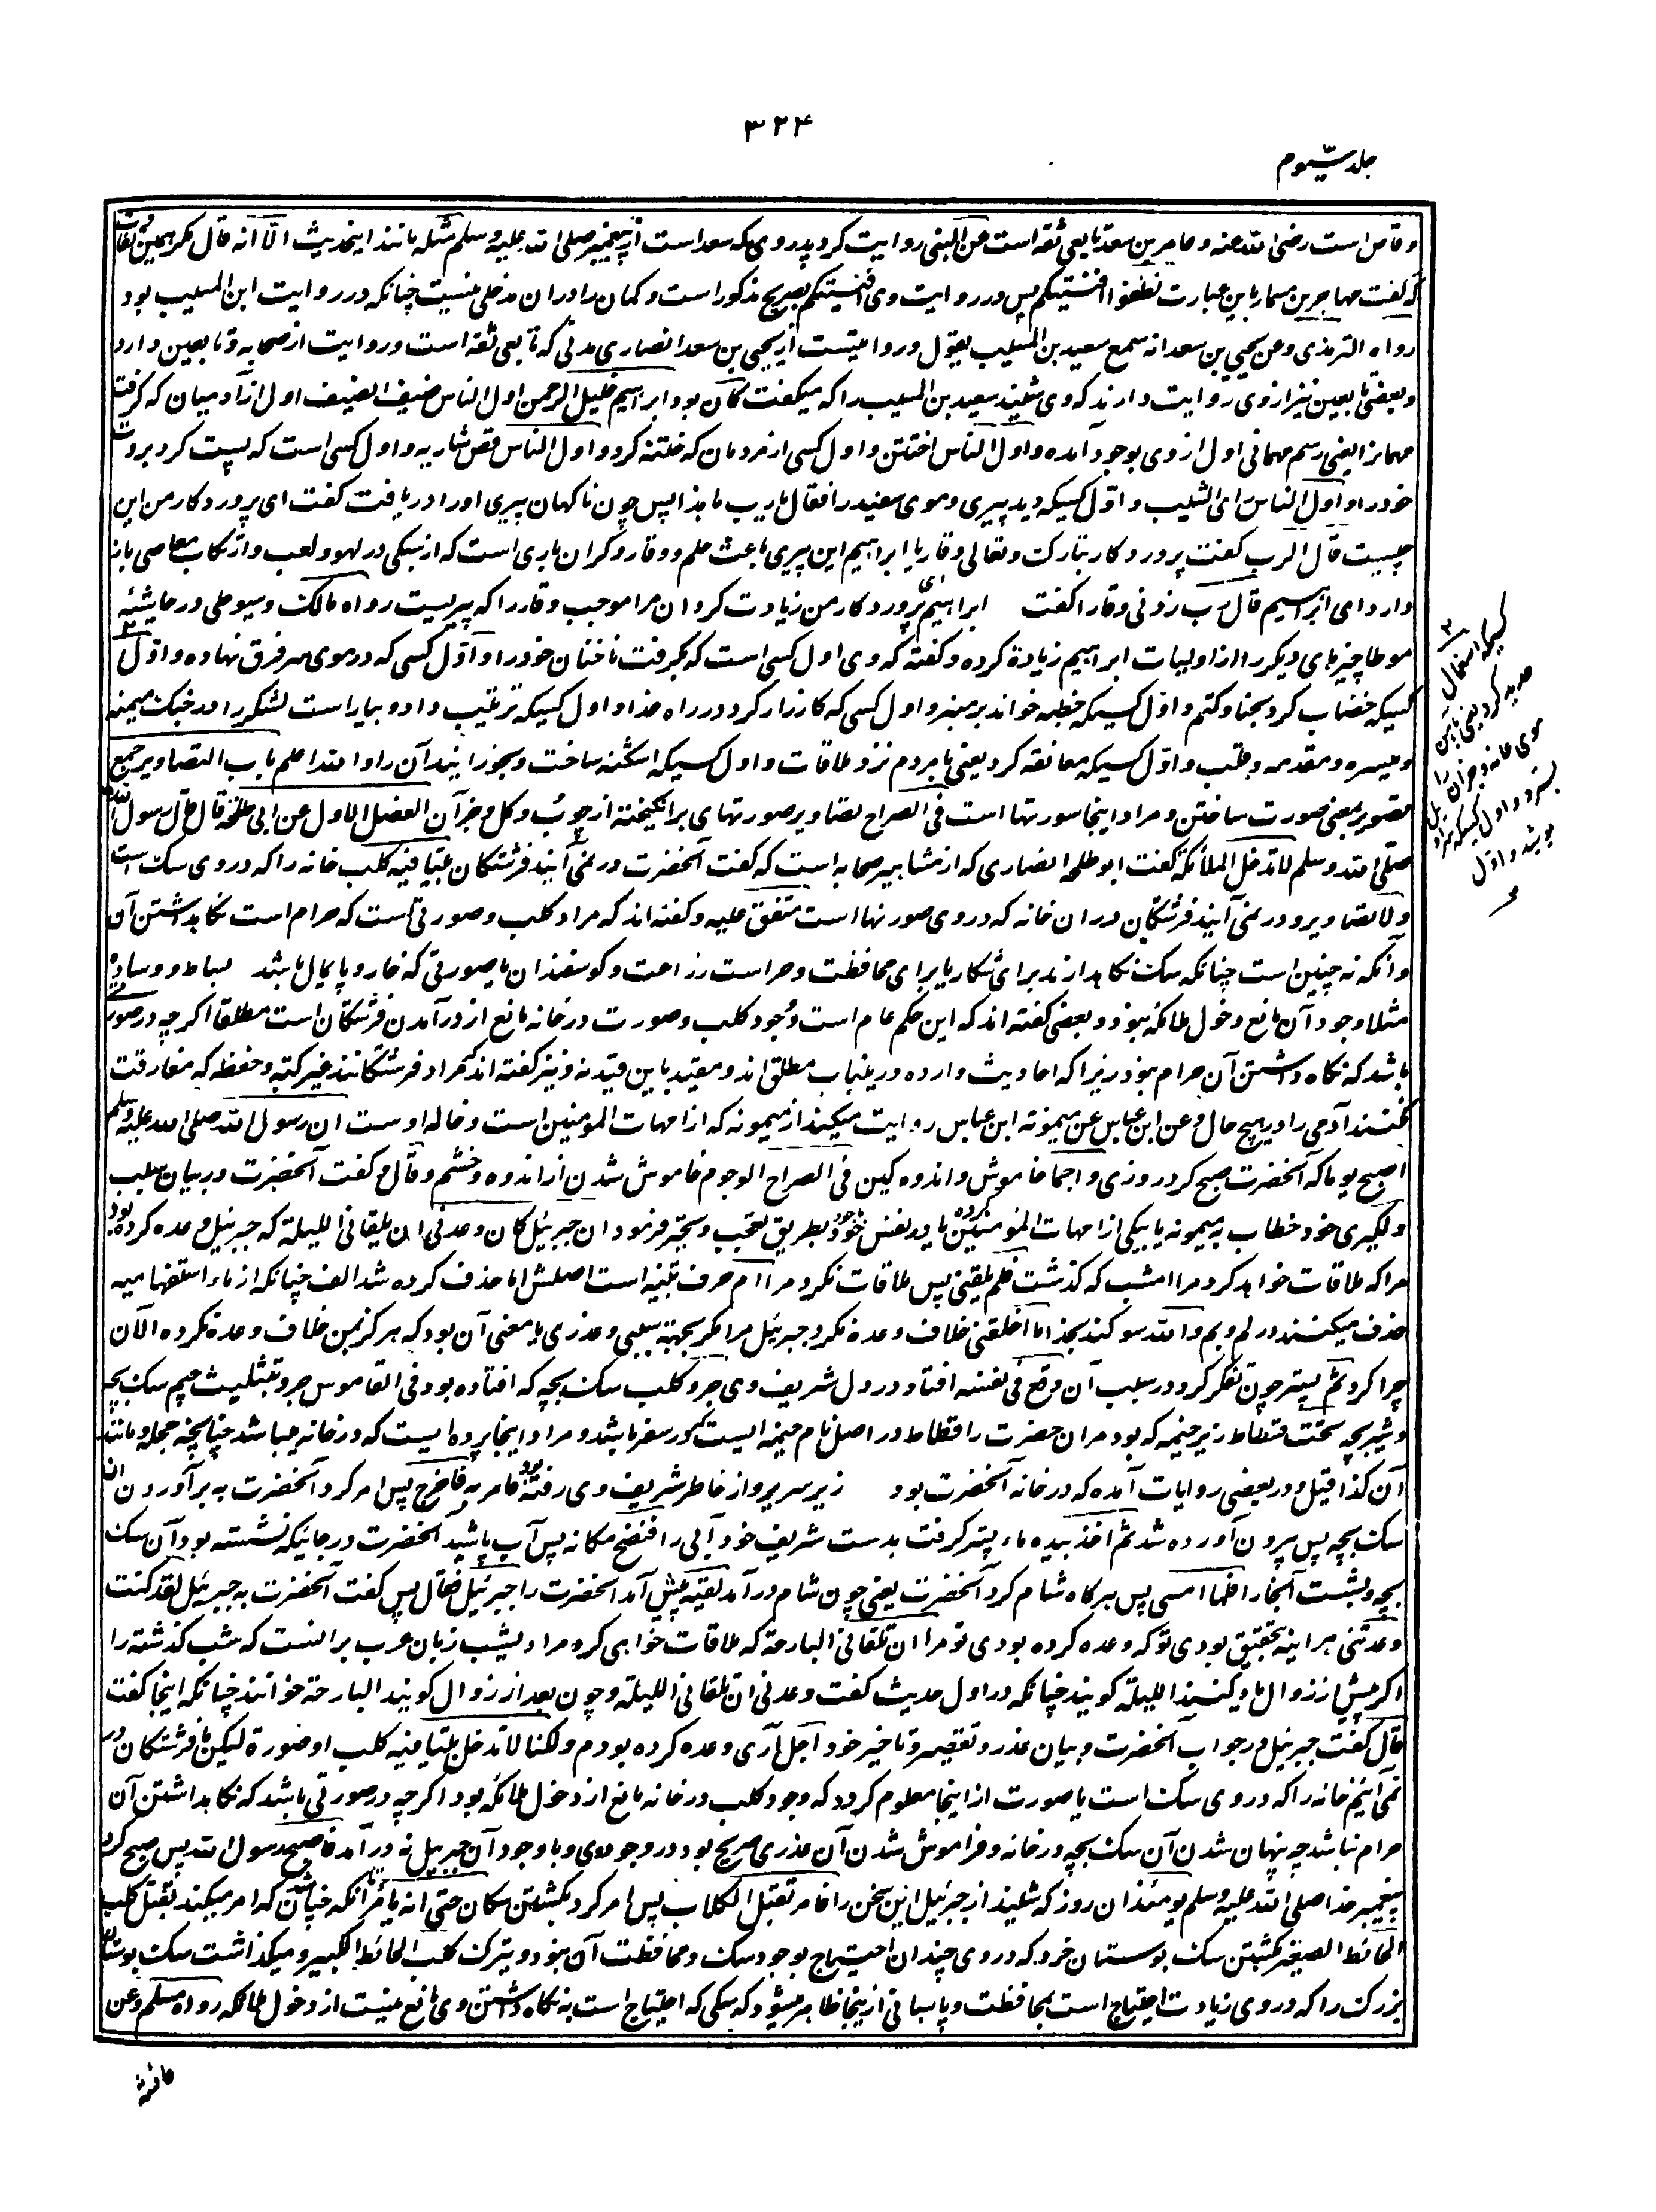 ۳۲۴
جلد سیوم
وقاص است رضی الله عنه و عامر بن سعد تابعی ثقه است عن النبی روایت کرد پدر وی که سعد است از پیغمبر صلی الله علیه وسلم مثله مانند اینحدیث الا انه قال مگر همین تفاوت
که گفت مهاجر بن مسمار باین عبارت نظفوا افنیتکم پس در روایت وی افنیتکم بصریح مذکور است و گمان را دران مدخلی نیست چنانکه در روایت ابن المسیب بود
رواه الترمذی وعن یحیی بن سعد انه سمع سعید بن المسیب یقول و روایتست از یحیی بن سعد انصاری مدنی که تابعی ثقه است و روایت از صحابه و تابعین دارد
و بعضی تابعین نیز از وی روایت دارند که وی شنید سعید بن المسیب را که میگفت کان بود ابراهیم خلیل الرحمن اول الناس ضیف الضیف اول از آدمیان که گرفت
مهمانرا یعنی رسم مهمانی اول از وی بوجود آمده و اول الناس اختتن و اول کسی از مردمان که ختنه کرد و اول الناس قص شاربه و اول کسی است که پست کرد بروت
خود را و اول الناس رای الشیب و اول کسیکه دید پیری و موی سفید را فقال یارب ما هذا پس چون ناگهان پیری او را دریافت گفت ای پروردگار من این
چیست قال الرب گفت پروردگار تبارک و تعالی وقار یا ابراهیم این پیری باعث حلم و وقار و گران باری است که از سبکی در لهو و لعب و ارتکاب معاصی باز
دارد ای ابراهیم قال رب زدنی وقارا گفت ابراهیم ای پروردگار من زیادت کردان مرا موجب وقار را که پیریست رواه مالک و سیوطی در حاشیه
موطا چیزهای دیگر را از اولیات ابراهیم زیادة کرده و گفته که وی اول کسی است که بگرفت ناخنان خود را و اول کسی که در موی سر فرق نهاده و اول
کسیکه خضاب کرد بحنا و کتم و اول کسیکه خطبه خواند بر منبر و اول کسی که کارزار کرد در راه خدا و اول کسیکه ترتیب داد و بیاراست لشکر را در جنگ میمنه
و میسره و مقدمه و قلب و اول کسیکه معانقه کرد یعنی با مردم نزد ملاقات و اول کسیکه اشکنه ساخت و بخورانید آن را والله اعلم باب التصاویر جمع
تصویر بمعنی صورت ساختن و مراد اینجا صورتها است فی الصراح تصاویر صورتهای برانگیخته از چوب و گل و جز آن الفصل الاول عن ابی طلحة قال قال رسول الله
صلی الله وسلم لا تدخل الملائکة گفت ابو طلحه انصاری که از مشاهیر صحابه است که گفت آنحضرت در نمی آیند فرشتگان بیتا فیه کلب خانه را که در وی سگ است
ولا تصاویر و در نمی آیند فرشتگان دران خانه که در وی صورتها است متفق علیه و گفته اند که مراد کلب و صورتی است که حرام است نگاهداشتن آن
و آنکه نه چنین است چنانکه سگ نگاهدارند برای شکار یا برای محافظت و حراست زراعت و گوسفندان یا صورتی که خار و پایمال باشد بساط و وساده
مثلا وجود آن مانع دخول ملائکه نبود و بعضی گفته اند که این حکم عام است وجود کلب و صورت در خانه مانع از درآمدن فرشتگان است مطلقا اگر چه در صورتی
باشد که نگاه داشتن آن حرام نبود زیرا که احادیث وارده درینباب مطلق اند و مقید باین قید نه و نیز گفته اند که مراد فرشتگانند غیر کتبه و حفظه که مفارقت
نکنند آدمی را در هیچ حال وعن ابن عباس عن میمونة ابن عباس روایت میکند از میمونه که از امهات المومنین است و خاله اوست ان رسول الله صلی الله علیه وسلم
اصبح یوما که آنحضرت صبح کرد روزی واجما خاموش و اندوه گین فی الصراح الوجوم خاموش شدن از اندوه و خشم وقال و گفت آنحضرت در بیان سبب
دلگیری خود خطاب به میمونه یا بیکی از امهات المومنین کرده یا در نفس خود با خود بطریق تعجب و تحیر فرمود ان جبرئیل کان وعدنی ان یلقانی اللیلة که جبرئیل وعده کرده بود
مرا که ملاقات خواهد کرد مرا امشب که گذشت فلم یلقنی پس ملاقات نکرد مرا ام حرف تنبیه است اصلش اما حذف کرده شد الف چنانکه از ماء استفهامیه
حذف میکنند در لم و بم والله سوگند بخدا ما اخلفنی خلاف وعده نکرد جبرئیل مرا مگر بجهة سببی و عذری یا معنی آن بود که هرگز بمن خلاف وعده نکرده الآن
چرا کرد ثم پستر چون تفکر کرد در سبب آن وقع فی نفسه افتاد در دل شریف وی جرو کلب سگ بچه که افتاده بود فی القاموس جرو بتثلیث جیم سگ بچه
و شیر بچه تحت فسطاط زیر خیمه که بود مران حضرت را فسطاط در اصل نام خیمه ایست که در سفر باشد و مراد اینجا پرده ایست که در خانه میباشد چنانچه حجله و مانند
آن کذا قیل و در بعضی روایات آمده که در خانه آنحضرت بود زیر سریر و از خاطر شریف وی رفته بود فامر به فاخرج پس امر کرد آنحضرت به برآوردن آن
سگ بچه پس بیرون آورده شد ثم اخذ بیده ماء پستر گرفت بدست شریف خود آبی را فنضح مکانه پس آب پاشید آنحضرت در جائیکه نشسته بود آن سگ
بچه و بشست آنجا را فلما امسی پس هرگاه شام کرد آنحضرت یعنی چون شام در آمد لقیه پیش آمد آنحضرت را جبرئیل فقال پس گفت آنحضرت به جبرئیل لقد کنت
وعدتنی هر اینه بتحقیق بودی تو که وعده کرده بودی تو مرا ان تلقانی البارحة که ملاقات خواهی کرد مرا دیشب زبان عرب برانست که شب گذشته را
اگر پیش از زوال یاد کنند اللیلة گویند چنانکه در اول حدیث گفت وعدنی ان تلقانی اللیلة و چون بعد از زوال گویند البارحة خوانند چنانکه اینجا گفت
قال گفت جبرئیل در جواب آنحضرت و بیان عذر و تقصیر و تاخیر خود اجل آری وعده کرده بودم ولکنا لا ندخل بیتا فیه کلب او صورة لیکن ما فرشتگان در
نمی آئیم خانه را که در وی سگ است یا صورت از اینجا معلوم گردد که وجود کلب در خانه مانع از دخول ملائکه بود اگر چه در صورتی باشد که نگاهداشتن آن
حرام نباشد چه پنهان شدن آن سگ بچه در خانه و فراموش شدن آن عذری صریح بود در وجود وی و با وجود آن جبریل نه در آمد فاصبح رسول الله پس صبح کرد
پیغمبر خدا صلی الله علیه وسلم یومئذ ان روز که شنید از جبرئیل این سخن را فامر بقتل الکلاب پس امر کرد بکشتن سگان حتی انه یامر تا آنکه چنان شد که امر میکند بقتل کلب
الحائط الصغیر بکشتن سگ بوستان خرد که در وی چندان احتیاج بوجود سگ و محافظت آن نبود و یترک کلب الحائط الکبیر و میگذاشت سگ بوستان
بزرگ را که در وی زیادت احتیاج است بمحافظت و پاسبانی ازینجا ظاهر میشود که سگی که احتیاج است به نگاه داشتن وی مانع نیست از دخول ملائکه رواه مسلم وعن
کسیکه استعمال
حدید کرد یعنی باهن
موی عانه و جز آن را
بسترد و اول کسیکه سراویل
پوشید و اول
عائشة